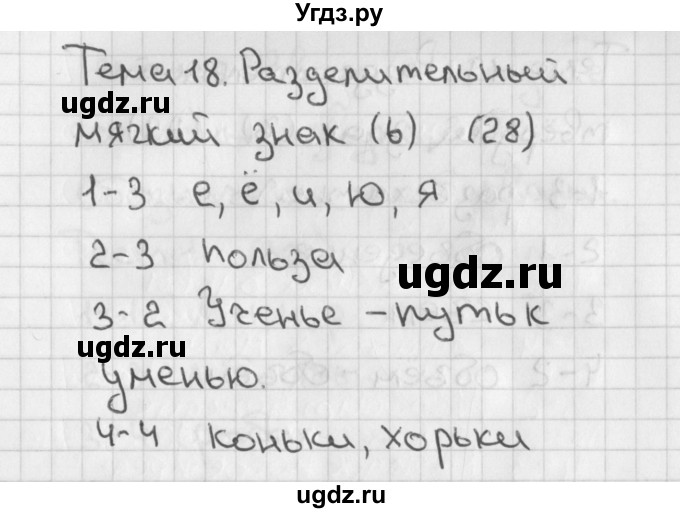 Угдз.ру
Тема 18. Разделительный
ugdz.ru
мягкий знак (ь) (28)
1-3 е, ё, и, ю, я
2-3 польза
ugdz.ru
3-2 Ученье - путь к
ugdz.ru
уменью.
4-4 коньки, хорьки
ugdz.ru